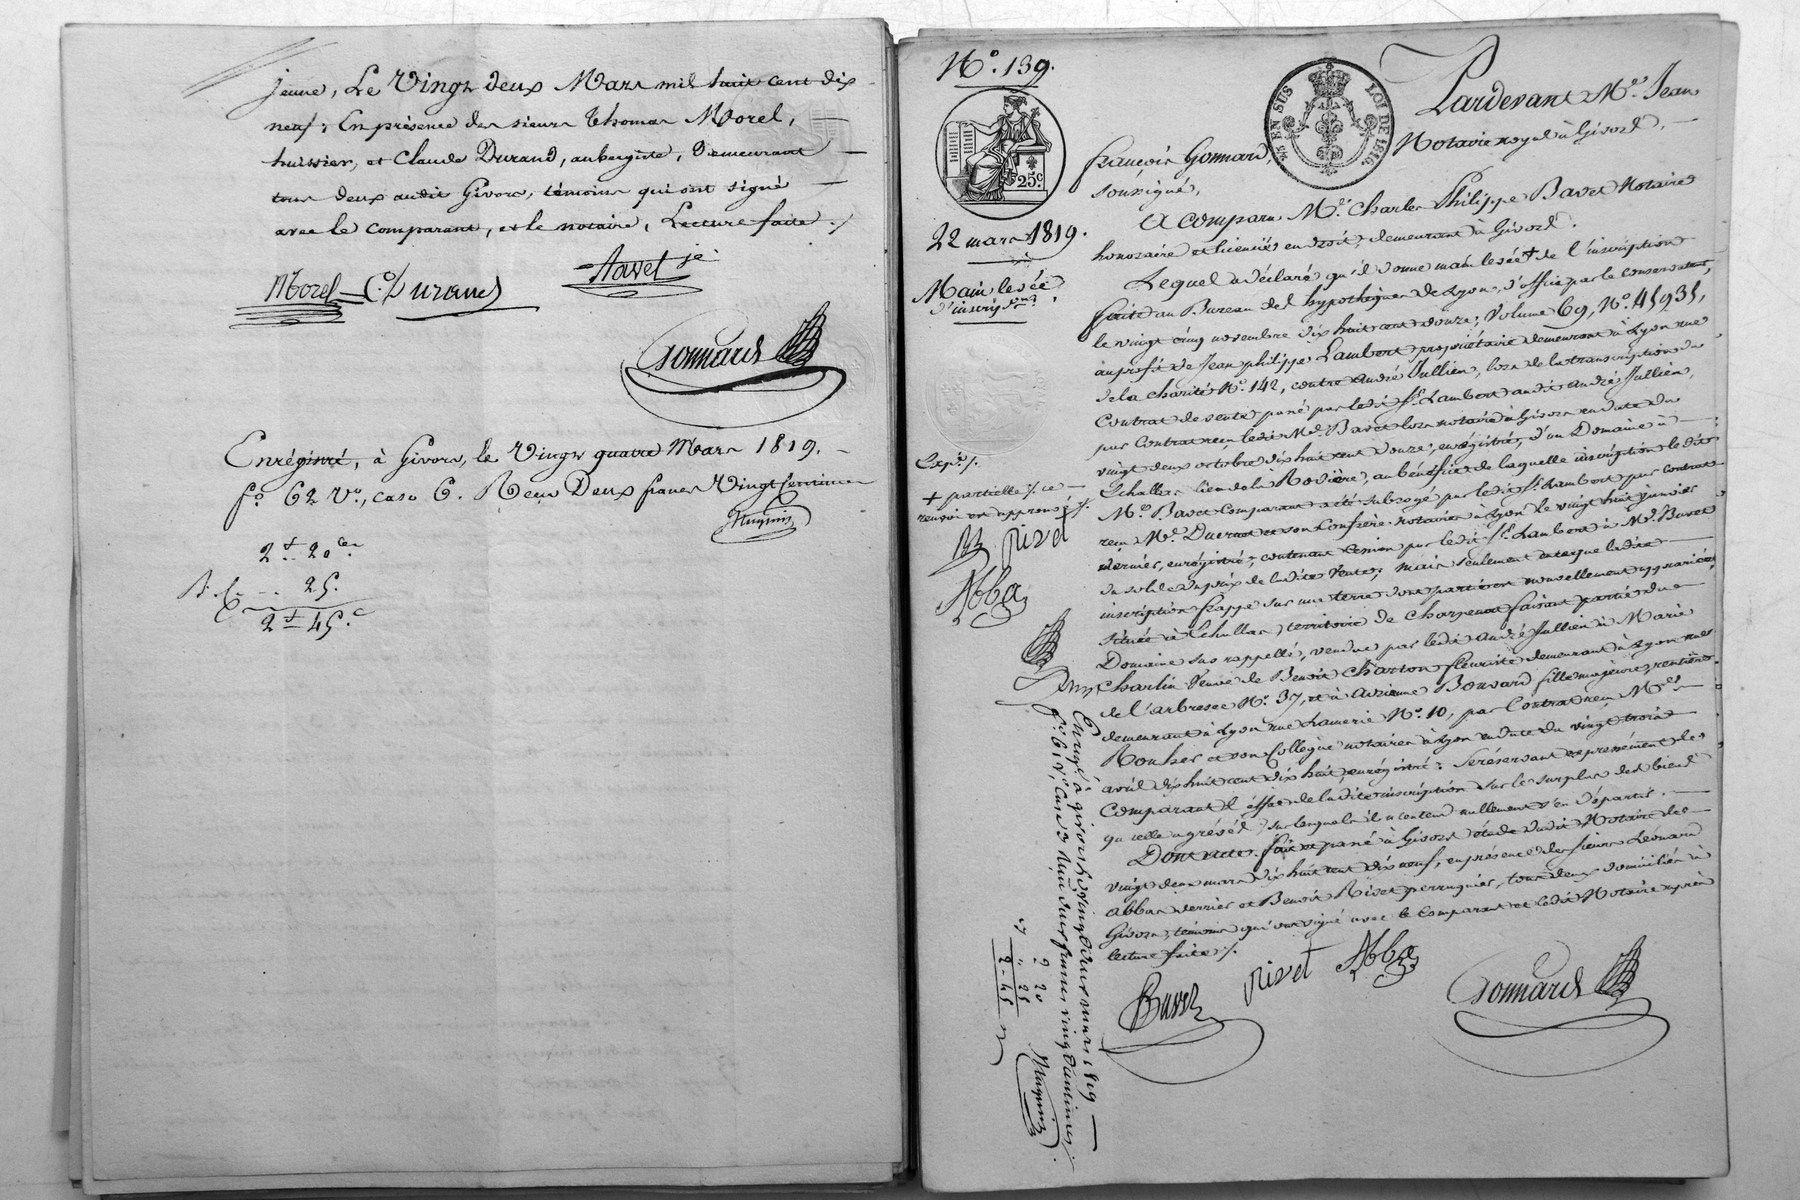 jeune, Le Vingt deux Mars mil huit cent dix
neuf; En présence des sieurs Thomas Morel,
huissier, et Claude Durand, aubergiste, Demeurant
tous deux audit Givors, témoins qui ont signé
avec le comparant, et le notaire, Lecture faite ./.
Morel C. Durand
Gonnard
Enrégistré, à Givors, le Vingt quatre Mars 1819.
f.° 62 V.°, case 6. Reçu Deux francs Vingt centimes
2 20
25.
2 45.c
N.° 139.
EN SUS
LOI DE 1816
25c
22 mars 1819.
Main levée
d'inscrip.on
Exp.é /.
+ partielle ./. ce
renvoi est approuvé ./.
Rivet
Abba
Pardevant M.e Jean
françois Gonnard, Notaire royal à Givors,
soussigné,
A comparu M.e Charles Philippe Bavet Notaire
honoraire et licencié en droit, demeurant à Givors.
Lequel a déclaré qu'il donne main levée + de l'inscription
faite au Bureau des hypothèques de Lyon, d'office par le conservateur,
le vingt cinq novembre dix huit cent douze; Volume 69, N.° 45931,
au profit de Jean philippe Lambert propriétaire demeurant à Lyon rue
de la charité N.° 142, contre André Jullien, lors de la transcription du
Contrat de vente passé par ledit S.r Lambert audit André Jullien,
par Contrat reçu ledit M.e Bavet lors notaire à Givors en date du
vingt deux octobre dix huit cent douze, enrégistré, d'un Domaine à
Echallas lieu de la Rodière, au bénéfice de laquelle inscription ledit
M.e Bavet Comparant a été subrogé par ledit S.r Lambert par Contrat
reçu M.e Ducruet et son Confrère notaires à Lyon le vingt huit janvier
dernier, enrégistré, contenant Cession par ledit S.r Lambert à M.e Bavet
du solde du prix de ladite Vente; mais seulement en ce que ladite
inscription frappe sur une terre dont partie est nouvellement
située à Echallas, territoire de Charpenat faisant partie du
Domaine sus rappellé, vendue par ledit André Jullien à Marie
Charlin Veuve de Benoît Charton fleuriste demeurant à Lyon rue
de l'arbresec N.° 37, et à Bonnard fille majeure, rentière
demeurant à Lyon rue Lanterie N.° 10, par Contrat reçu M.es
Rouher et son Collègue notaires à Lyon en date du vingt trois
avril dix huit cent dix huit, enrégistré: Se réservant expressément le
Comparant l'effet de ladite inscription sur le surplus des biens
qu'elle a grévés, sur lesquels il n'entend nullement s'en départir.
Dont acte. fait et passé à Givors étude dudit Notaire le
vingt deux mars dix huit cent dix neuf, en présence des sieurs Léonard
Abba verrier et Benoît Rivet perruquier, tous deux domiciliés à
Givors, témoins qui ont signé avec le Comparant et ledit Notaire après
lecture faite ./.
Bavet Rivet Abba
Gonnard
Enreg.é à givors le vingt deux mars 1819
f.° 61 v.° Case 3 reçu deux francs vingt centimes
2 20
25
2-45